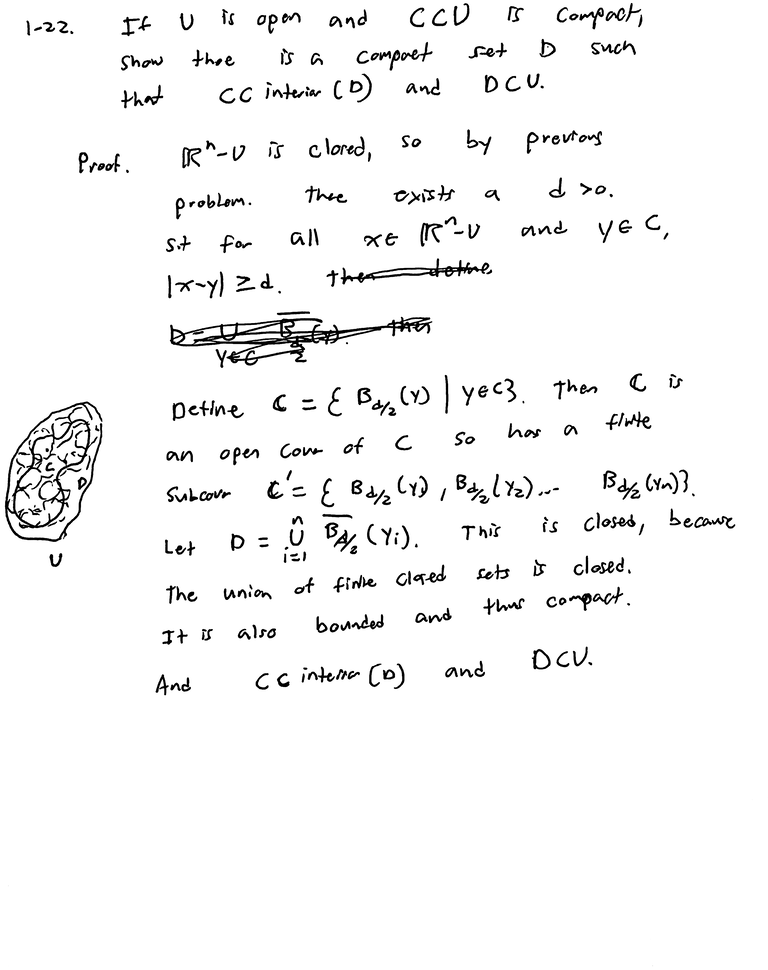 1-22. If U is open and C⊂U is compact,
show thee is a compact set D such
that C⊂ interior (D) and D⊂U.
Proof. ℝⁿ-U is closed, so by previous
problem. thee exists a d >0.
s.t for all x∈ ℝⁿ-U and y∈ C,
|x-y| ≥d. then define
D = ∪ B̅_{d/2}(y). then
y∈C
Define ℂ = { B_{d/2}(y) | y∈C}. Then ℂ is
an open cover of C so has a finite
subcover ℂ' = { B_{d/2}(y₁), B_{d/2}(y₂)... B_{d/2}(yₙ)}.
Let D = ∪ᵢ₌₁ⁿ B̅_{d/2}(yᵢ). This is closed, because
the union of finite closed sets is closed.
It is also bounded and thus compact.
And C⊂ interior (D) and D⊂U.
C
D
U